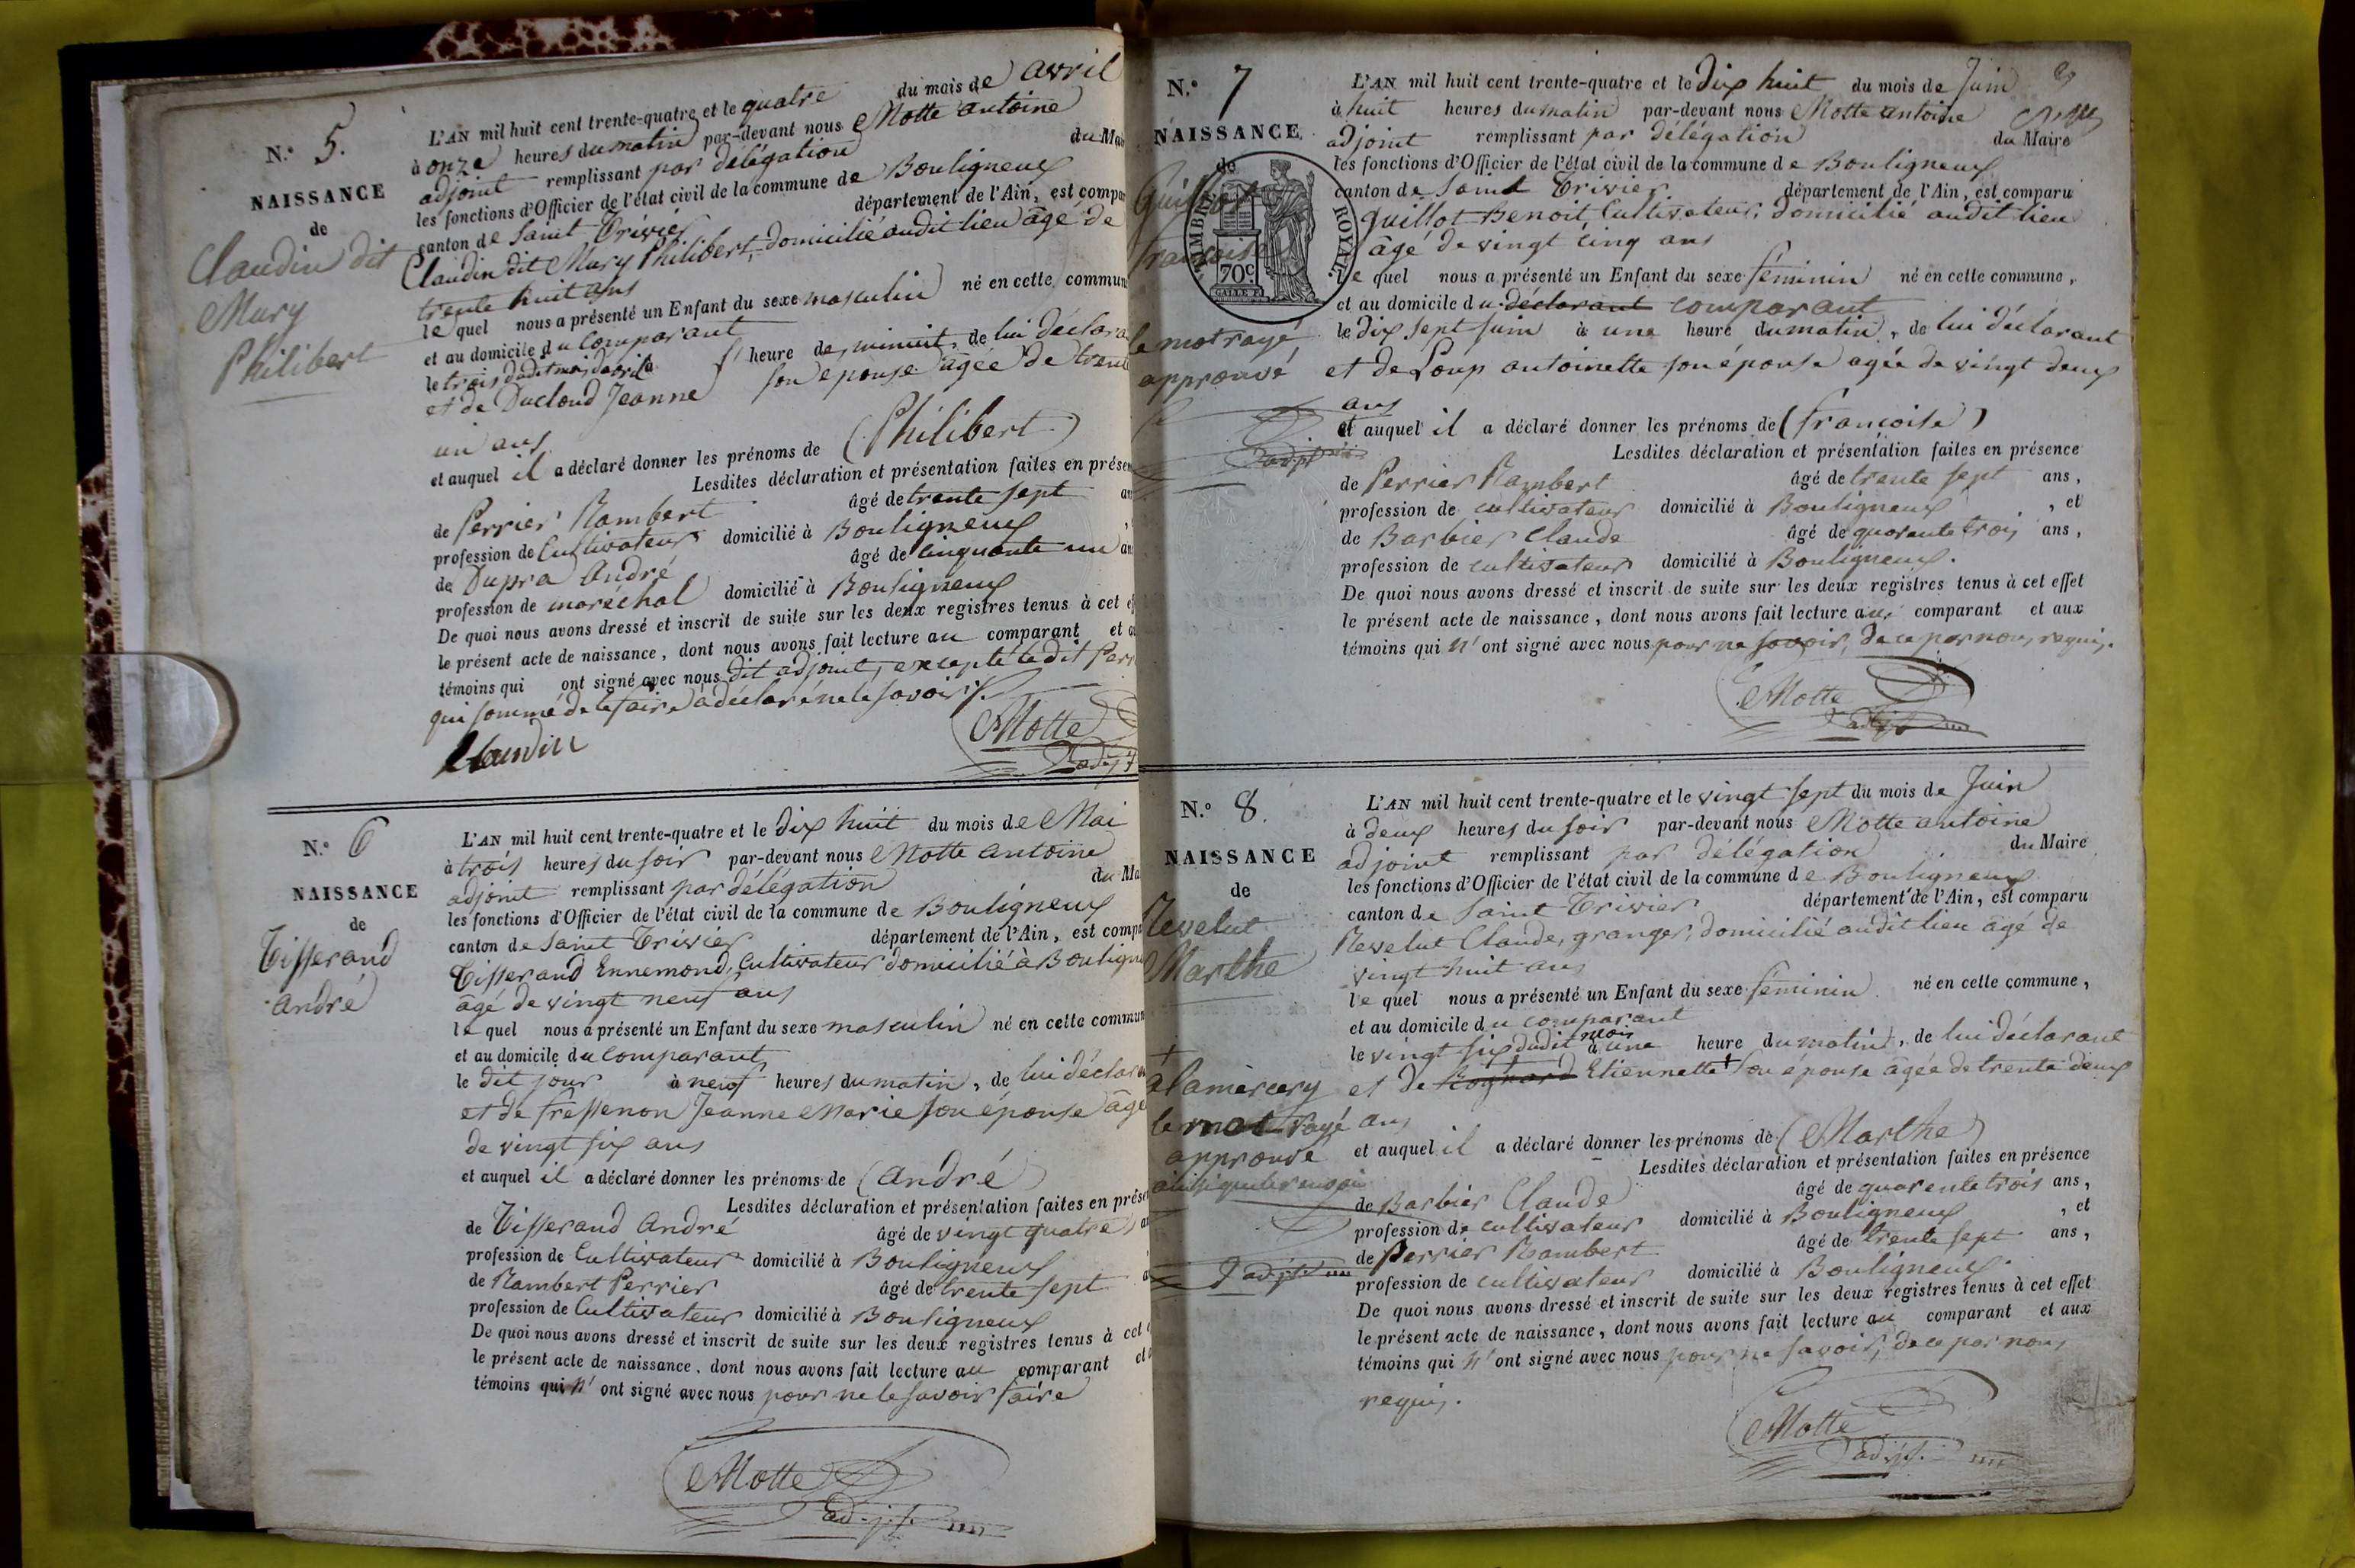 N.º 5.
NAISSANCE
de
Claudin dit
Mury
Philibert
L'AN mil huit cent trente-quatre et le quatre du mois de avril
à onze heures du matin par-devant nous Motte antoine
adjoint remplissant par délégation du Mai
les fonctions d'Officier de l'état civil de la commune de Bouligneux
canton de Saint Trivier département de l'Ain, est compar
Claudin dit Mury Philibert, domicilié audit lieu âgé de
trente huit ans
le quel nous a présenté un Enfant du sexe masculin né en cette commun
et au domicile du Comparant
le trois dudit mois d'avril heure de minuit, de lui déclara
et de Ducloud Jeanne son épouse âgée de trente
un ans
et auquel il a déclaré donner les prénoms de (Philibert)
Lesdites déclaration et présentation faites en présen
de Perrier Rambert âgé de trente sept an
profession de Cultivateur domicilié à Bouligneux
de Dupra André âgé de cinquante un an
profession de maréchal domicilié à Bouligneux
De quoi nous avons dressé et inscrit de suite sur les deux registres tenus à cet ef
le présent acte de naissance, dont nous avons fait lecture au comparant et au
témoins qui ont signé avec nous dit adjoint, excepté ledit Perri
qui sommé de le faire a déclaré ne le savoir
Claudin
Motte
adj.t
N.º 6
NAISSANCE
de
Tisserand
André
L'AN mil huit cent trente-quatre et le dix huit du mois de Mai
à trois heures du soir par-devant nous Motte antoine
adjoint remplissant par délégation du Ma
les fonctions d'Officier de l'état civil de la commune de Bouligneux
canton de Saint Trivier département de l'Ain, est compa
Tisserand Ennemond, Cultivateur domicilié à Bouligne
âgé de vingt neuf ans
le quel nous a présenté un Enfant du sexe masculin né en cette commun
et au domicile du Comparant
le dit jour à neuf heures du matin, de lui déclara
et de fressenon Jeanne Marie son épouse âgé
de vingt six ans
et auquel il a déclaré donner les prénoms de (André)
Lesdites déclaration et présentation faites en prése
de Tisserand André âgé de vingt quatre an
profession de Cultivateur domicilié à Bouligneux
de Rambert Perrier âgé de trente sept
profession de Cultivateur domicilié à Bouligneux
De quoi nous avons dressé et inscrit de suite sur les deux registres tenus à cet
le présent acte de naissance, dont nous avons fait lecture au comparant et
témoins qui n' ont signé avec nous pour ne le savoir faire
Motte
adj.t
N.º 7
NAISSANCE
de
Guillot
françoise
TIMBRE ROYAL
70c
le mot rayé
approuvé
adj.t
L'AN mil huit cent trente-quatre et le Dix huit du mois de Juin
à huit heures du matin par-devant nous Motte antoine
adjoint remplissant par délégation du Maire
les fonctions d'Officier de l'état civil de la commune de Bouligneux
canton de Saint Trivier département de l'Ain, est comparu
Guillot Benoit, Cultivateur, domicilié audit lieu
âgé de vingt cinq ans
le quel nous a présenté un Enfant du sexe féminin né en cette commune,
et au domicile du déclarant comparant
le dix sept juin à une heure du matin, de lui déclarant
et de Loup antoinette son épouse agée de vingt deux
ans
et auquel il a déclaré donner les prénoms de (françoise)
Lesdites déclaration et présentation faites en présence
de Perrier Rambert âgé de trente sept ans,
profession de cultivateur domicilié à Bouligneux, et
de Barbier Claude âgé de quarente trois ans,
profession de cultivateur domicilié à Bouligneux.
De quoi nous avons dressé et inscrit de suite sur les deux registres tenus à cet effet
le présent acte de naissance, dont nous avons fait lecture au comparant et aux
témoins qui n' ont signé avec nous pour ne savoir, de ce par nous requis.
Motte
adj.t
N.º 8.
NAISSANCE
de
Revelut
Marthe
+
alamercery
le mot rayé
approuvé
ainsi que le renvoi
adj.t
L'AN mil huit cent trente-quatre et le vingt sept du mois de Juin
à deux heures du soir par-devant nous Motte antoine
adjoint remplissant par délégation du Maire
les fonctions d'Officier de l'état civil de la commune de Bouligneux
canton de Saint Trivier département de l'Ain, est comparu
Revelut Claude, granger, domicilié audit lieu âgé de
vingt huit ans
le quel nous a présenté un Enfant du sexe féminin né en cette commune,
et au domicile du comparant
le vingt six dudit mois à une heure du matin, de lui déclarant
et de Etiennette + son épouse âgée de trente deux
ans
et auquel il a déclaré donner les prénoms de (Marthe)
Lesdites déclaration et présentation faites en présence
de Barbier Claude âgé de quarente trois ans,
profession de cultivateur domicilié à Bouligneux, et
de Perrier Rambert âgé de trente sept ans,
profession de cultivateur domicilié à Bouligneux.
De quoi nous avons dressé et inscrit de suite sur les deux registres tenus à cet effet
le présent acte de naissance, dont nous avons fait lecture au comparant et aux
témoins qui n' ont signé avec nous pour ne savoir, de ce par nous
requis.
Motte
adj.t